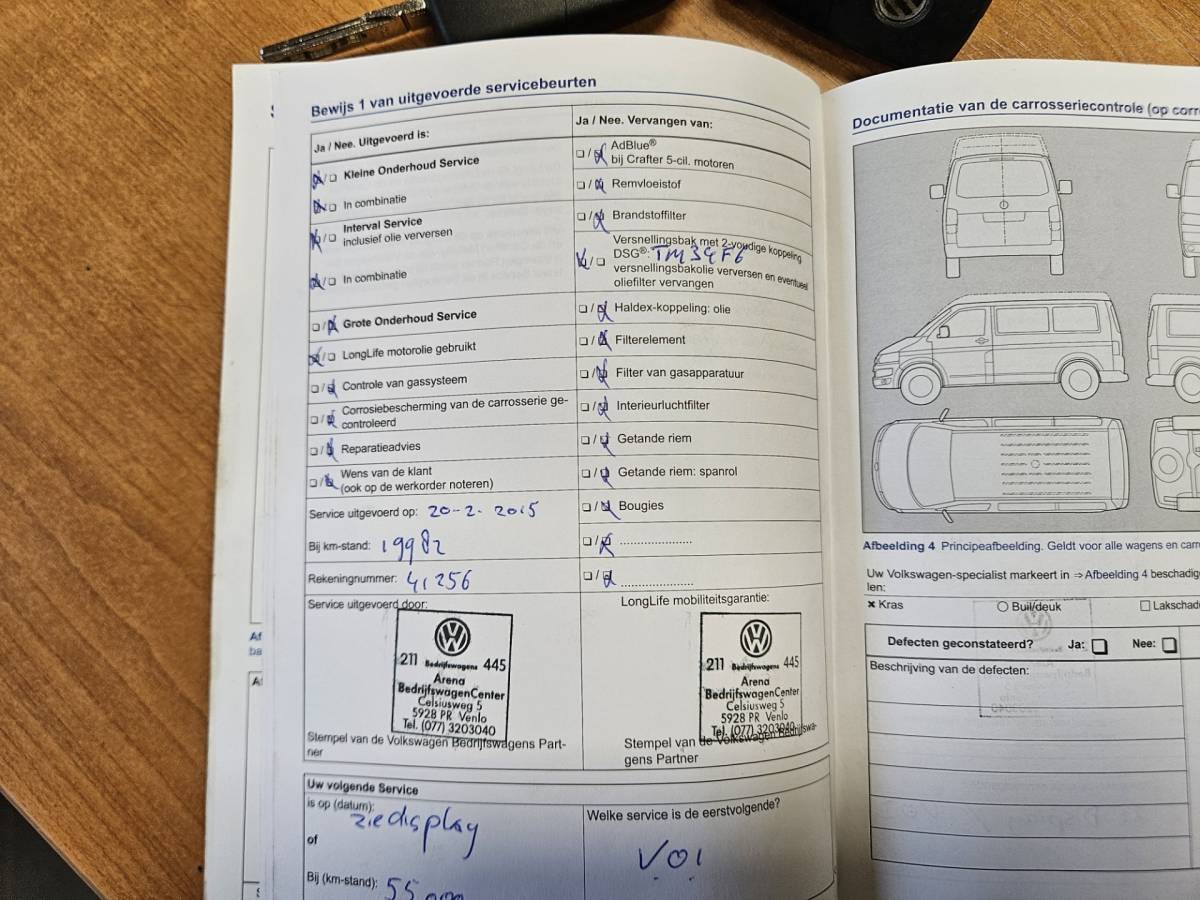 Bewijs 1 van uitgevoerde servicebeurten
Ja / Nee. Uitgevoerd is:
Kleine Onderhoud Service
In combinatie
Interval Service
inclusief olie verversen
In combinatie
Grote Onderhoud Service
LongLife motorolie gebruikt
Controle van gassysteem
Corrosiebescherming van de carrosserie ge-
controleerd
Reparatieadvies
Wens van de klant
(ook op de werkorder noteren)
Service uitgevoerd op: 20-2-2015
Bij km-stand: 19982
Rekeningnummer: 41256
Service uitgevoerd door:
211 Bedrijfswagens 445
Arena
BedrijfswagenCenter
Celsiusweg 5
5928 PR Venlo
Tel. (077) 3203040
Stempel van de Volkswagen Bedrijfswagens Part-
ner
Ja / Nee. Vervangen van:
AdBlue®
bij Crafter 5-cil. motoren
Remvloeistof
Brandstoffilter
Versnellingsbak met 2-voudige koppeling
DSG®:
versnellingsbakolie verversen en eventueel
oliefilter vervangen
Haldex-koppeling: olie
Filterelement
Filter van gasapparatuur
Interieurluchtfilter
Getande riem
Getande riem: spanrol
Bougies
LongLife mobiliteitsgarantie:
211 Bedrijfswagens 445
Arena
BedrijfswagenCenter
Celsiusweg 5
5928 PR Venlo
Tel. (077) 3203040
Stempel van de Volkswagen Bedrijfswa-
gens Partner
Uw volgende Service
is op (datum):
zie display
of
Bij (km-stand):
Welke service is de eerstvolgende?
Documentatie van de carrosseriecontrole (op
Afbeelding 4 Principeafbeelding. Geldt voor alle wagens en
Uw Volkswagen-specialist markeert in ⇒ Afbeelding 4
len:
Kras
Buil/deuk
Defecten geconstateerd? Ja: Nee:
Beschrijving van de defecten: